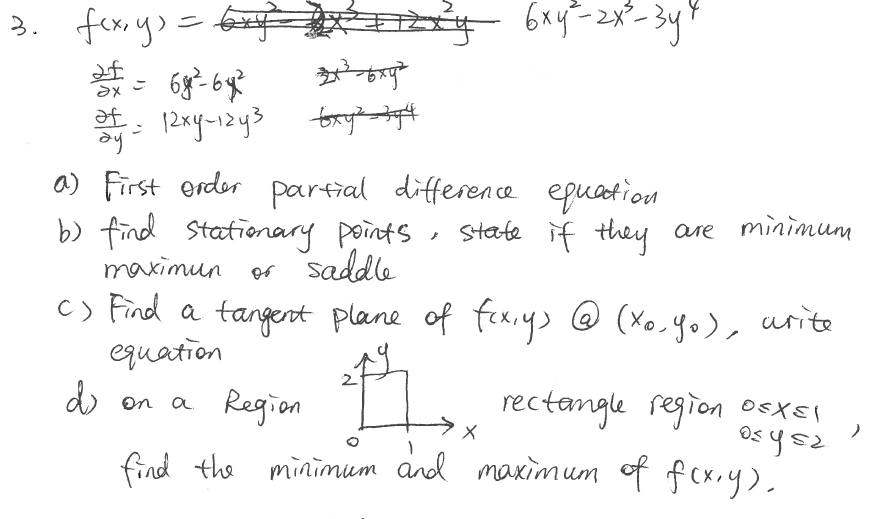 3. f(x,y) = 6xy² - 2x³ + 12x²y 6xy² - 2x³ - 3y⁴
∂f/∂x = 6y² - 6y² 3x³ - 6xy²
∂f/∂y = 12xy - 12y³ 6xy² - 3y⁴
a) First order partial difference equation
b) find stationary points, state if they are minimum
maximun or saddle
c) Find a tangent plane of f(x,y) @ (x₀, y₀), write
equation
d) on a Region y 2 0 1 x rectangle region 0≤x≤1
0≤y≤2,
find the minimum and maximum of f(x,y).